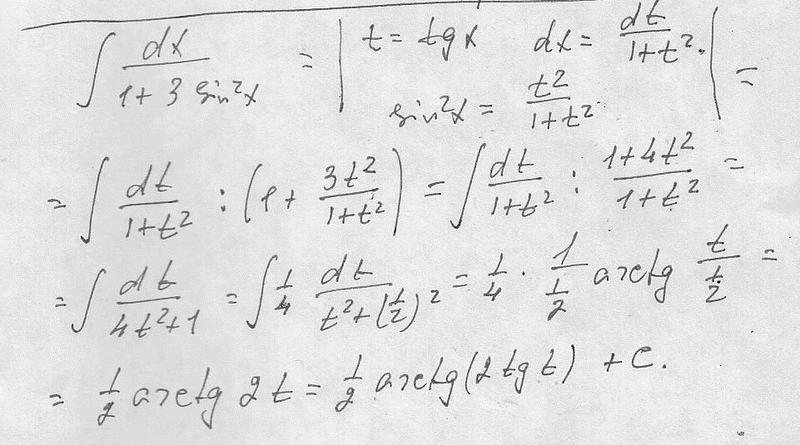 ∫ dx/(1+3 sin²x) = | t = tg x dx = dt/(1+t²). sin²x = t²/(1+t²) | =
= ∫ dt/(1+t²) : (1 + 3t²/(1+t²)) = ∫ dt/(1+t²) : (1+4t²)/(1+t²) =
= ∫ dt/(4t²+1) = ∫ 1/4 dt/(t²+(1/2)²) = 1/4 · 1/(1/2) arctg t/(1/2) =
= 1/2 arctg 2t = 1/2 arctg(2 tg t) + C.